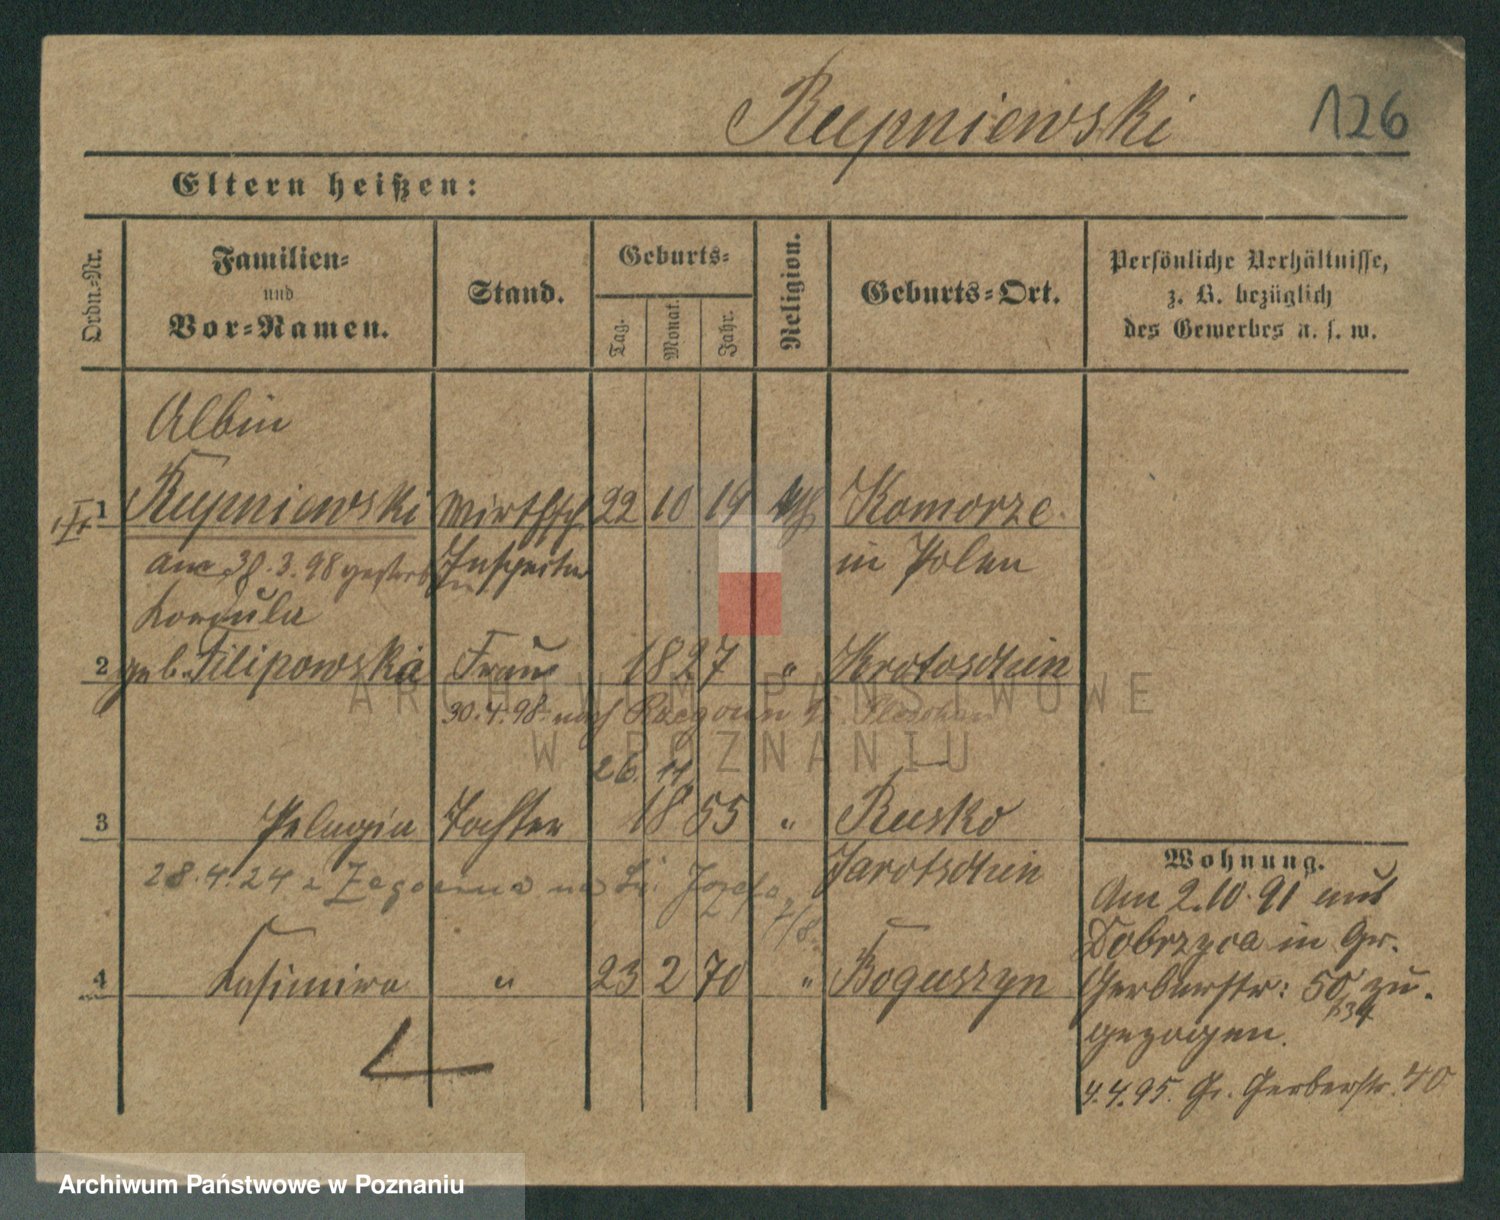 Rupniewski 126
Eltern heißen:
Ordn.-Nr.
Familien-
und
Vor-Namen.
Stand.
Geburts-
Tag.
Monat.
Jahr.
Religion.
Geburts-Ort.
Persönliche Verhältnisse,
z. B. bezüglich
des Gewerbes u. s. w.
Albin
1 Rupniewski Wirthsch. 22 10 19 Komorze
am 30.3.98 gestorben Inspector in Polen
Kordula
2 geb. Filipowska Frau 1827 " Krotoschin
30.4.98 nach
26. 11.
3 Pelagia Tochter 18 55 " Rusko
Jarotschin
28.4.24 Józefa
4 Kasimira " 23 2 70 " Boguszyn
Wohnung.
Am 2.10.91 aus
Dobrzyca in Gr.
Gerberstr: 50 zu-
gezogen.
4.4.95. Gr. Gerberstr. 40
ARCHIWUM PAŃSTWOWE
W POZNANIU
Archiwum Państwowe w Poznaniu